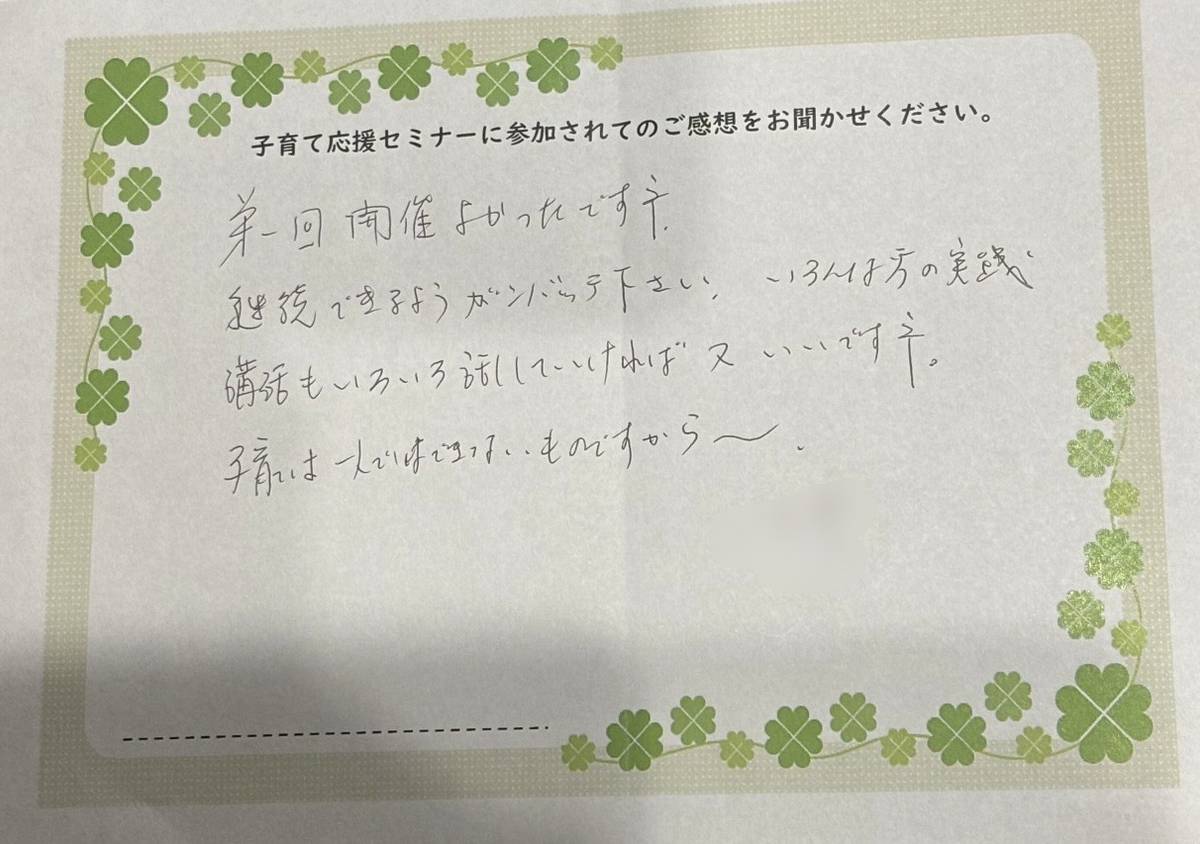 子育て応援セミナーに参加されてのご感想をお聞かせください。
第一回 開催 よかったですネ.
継続できるようガンバッテ下さい. いろんな方の実践
講話もいろいろ話していければ 又 いいですネ。
子育ては一人ではできないものですから〜.